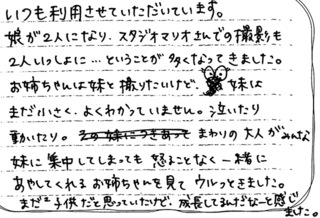 いつも利用させていただいています。
娘が2人になり、スタジオマリオさんでの撮影も
2人いっしょに…ということが多くなってきました。
お姉ちゃんは妹と撮りたいけど、妹は
まだ小さく、よくわかっていません。泣いたり
動いたり。その妹につきあって まわりの大人がみんな
妹に集中してしまっても 怒ることなく一緒に
あやしてくれるお姉ちゃんを見て ウルっときました。
まだ2子供だと思っていたけど、成長してるんだなーと感じ
ました。